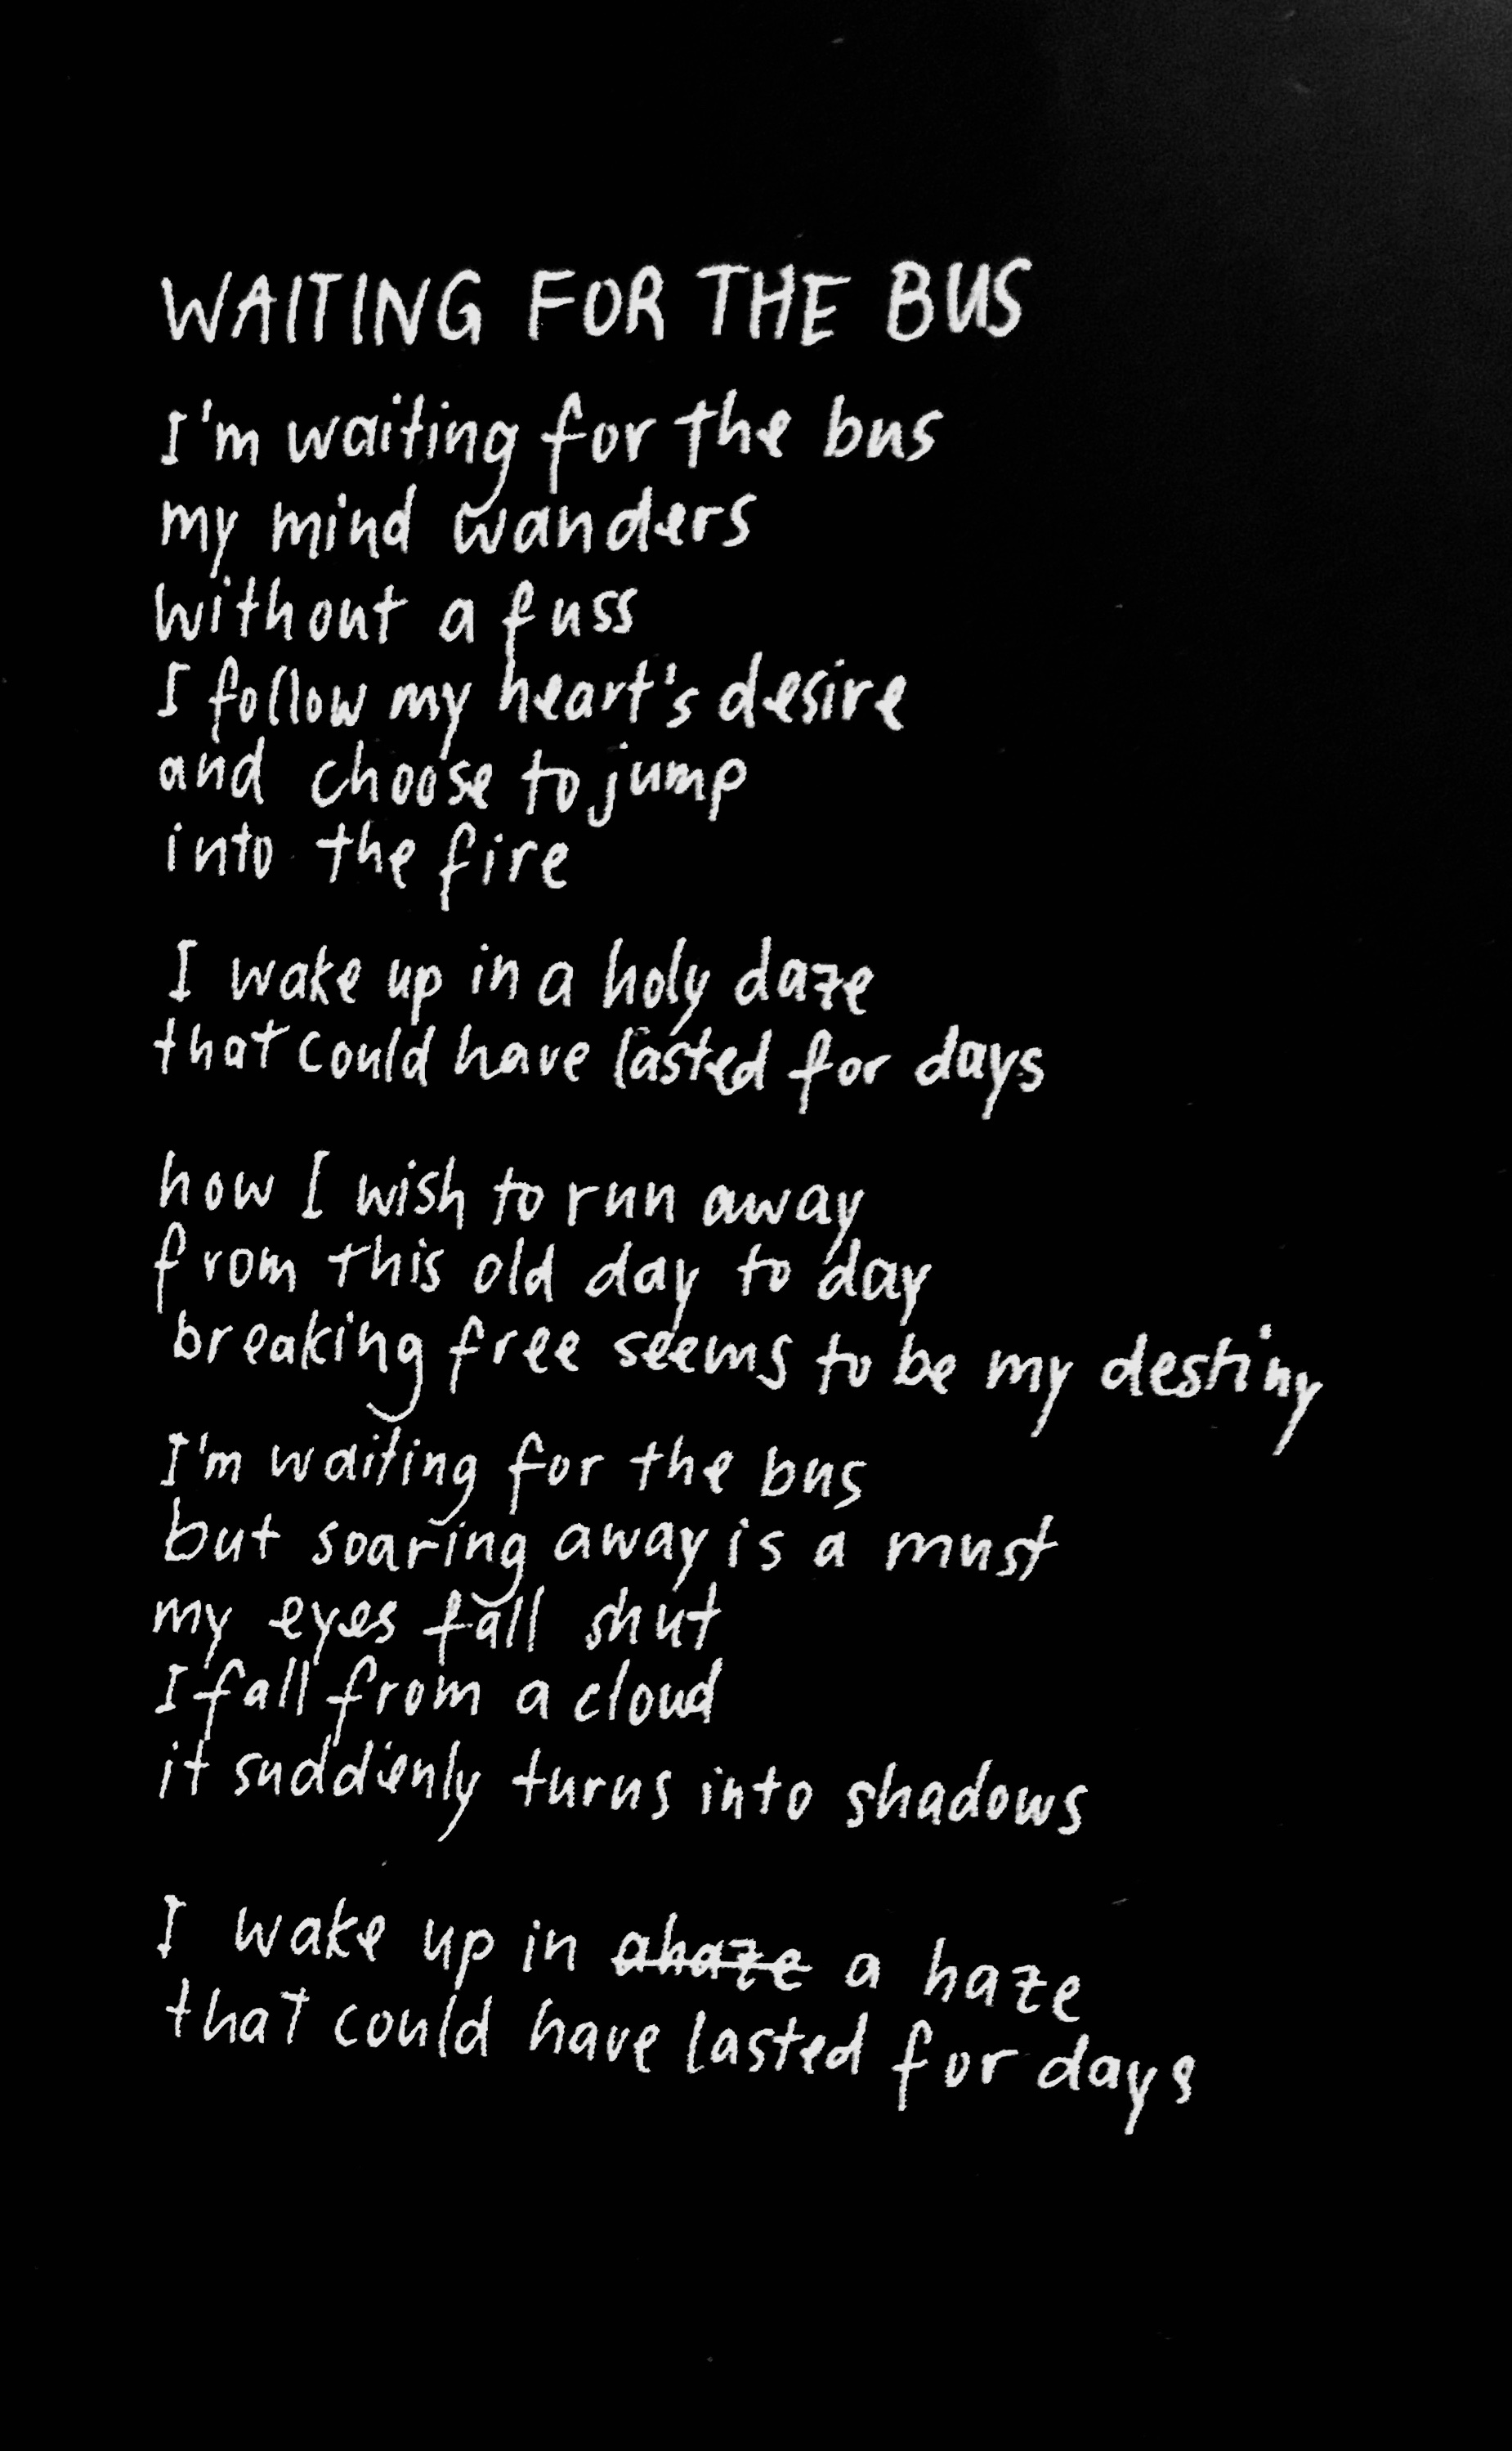 WAITING FOR THE BUS
I'm waiting for the bus
my mind wanders
without a fuss
I follow my heart's desire
and choose to jump
into the fire
I wake up in a holy daze
that could have lasted for days
how I wish to run away
from this old day to day
breaking free seems to be my destiny
I'm waiting for the bus
but soaring away is a must
my eyes fall shut
I fall from a cloud
it suddenly turns into shadows
I wake up in ahaze a haze
that could have lasted for days